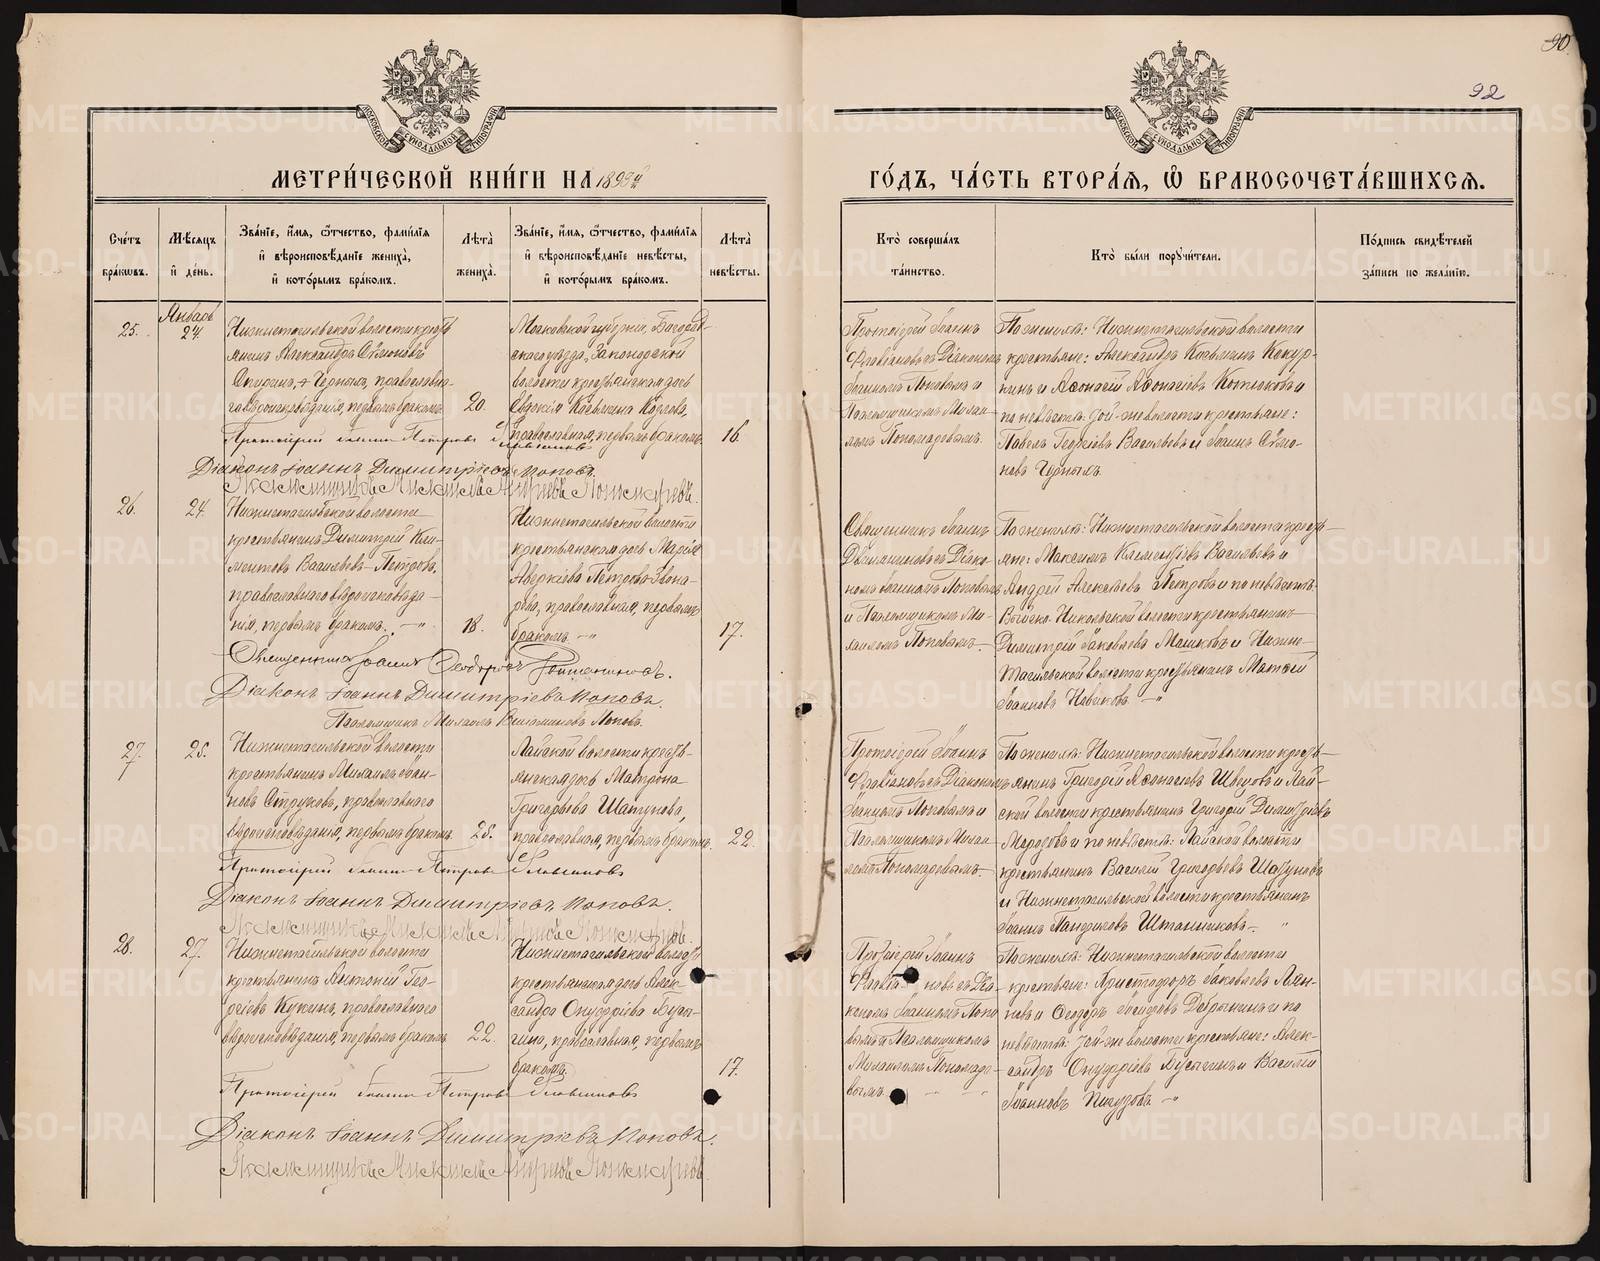 90.
92
МОСКОВСКОЙ СѴНОДАЛЬНОЙ ТИПОГРАФІИ
МОСКОВСКОЙ СѴНОДАЛЬНОЙ ТИПОГРАФІИ
МЕТРИ́ЧЕСКОЙ КНИ́ГИ НА 1893й
ГО́ДЪ, ЧА́СТЬ ВТОРА́Я, Ѽ БРАКОСОЧЕТА́ВШИХСЯ.
Сче́тъ бра́кѡвъ.
Мѣ́сяцъ и де́нь.
Зва́нїе, и́мя, ѻ́тчество, фами́лїя
и вѣроисповѣ́данїе жениха̀,
и кото́рымъ бра́комъ.
Лѣта̀ жениха̀.
Зва́нїе, и́мя, ѻ́тчество, фами́лїя
и вѣроисповѣ́данїе невѣ́сты,
и кото́рымъ бра́комъ.
Лѣта̀ невѣ́сты.
Кто̀ соверша́лъ та́инство.
Кто̀ бы́ли порꙋчи́тели.
По́дпись свидѣ́телей
за́писи по жела́нїю.
Январь
25.
24.
Нижнетагильской волости кресть
янинъ Александръ Сѵмеоновъ
православна-
го вѣроисповѣданія, первымъ бракомъ
20.
Московской губерніи, Богород-
скаго уѣзда, Запонорской
волости крестьянская дочь
Евдокія Козьмина
православная, первымъ бракомъ.
16.
Протоіерей Іоаннъ
Флавіановъ съ Діакономъ
Іоанномъ Поповымъ и
Псаломщикомъ Михаи-
ломъ Пономаревымъ.
По женихѣ: Нижнетагильской волости
крестьяне: Александръ Козьминъ
и Аѳонасій Аѳонасіевъ
по невѣстѣ: той-же волости крестьяне:
Павелъ Георгіевъ Васильевъ и Іоаннъ Сѵмео-
новъ Черныхъ.
Протоіерей Іоаннъ Петровъ Флавіановъ
Діаконъ Іоаннъ Димитріевъ Поповъ.
Псаломщикъ Михаилъ Пономаревъ.
26.
24.
Нижнетагильской волости
крестьянинъ Димитрій Кли-
ментовъ Васильевъ-Петровъ,
православнаго вѣроисповѣда-
нія, первымъ бракомъ. —"—
18.
Нижнетагильской волости
крестьянская дочь Марія
Аверкіева Петрова-Звона-
рева, православная, первымъ
бракомъ. —"—
17.
Священникъ Іоаннъ
съ Діако-
номъ Іоанномъ Поповымъ
и Псаломщикомъ Ми-
хаиломъ Поповымъ.
По женихѣ: Нижнетагильской волости кресть-
яне: Максимъ Климентіевъ Васильевъ и
Андрей Алексѣевъ Петровъ и по невѣстѣ:
Выйско-Никольской волости крестьянинъ
Димитрій Іаковлевъ Машковъ и Нижне-
тагильской волости крестьянинъ Матѳей
Іоанновъ Новиковъ. —"
Священникъ Іоаннъ Ѳеодоровъ
Діаконъ Іоаннъ Димитріевъ Поповъ.
Псаломщикъ Михаилъ Веніаминовъ Поповъ.
27.
25.
Нижнетагильской волости
крестьянинъ Михаилъ Іоан-
новъ Струковъ, православнаго
вѣроисповѣданія, первымъ бракомъ.
25.
Лайской волости кресть-
янская дочь Матрона
Григорьева Шапунова,
православная, первымъ бракомъ.
22.
Протоіерей Іоаннъ
Флавіановъ съ Діакономъ
Іоанномъ Поповымъ и
Псаломщикомъ Михаи-
ломъ Пономаревымъ.
По женихѣ: Нижнетагильской волости кресть-
янинъ Григорій Аѳонасіевъ Швецовъ и Лай-
ской волости крестьянинъ Григорій Димитріевъ
и по невѣстѣ: Лайской волости
крестьянинъ Василій Григорьевъ Шапуновъ
и Нижнетагильской волости крестьянинъ
Іоаннъ Штанниковъ. "
Протоіерей Іоаннъ Петровъ Флавіановъ
Діаконъ Іоаннъ Димитріевъ Поповъ.
Псаломщикъ Михаилъ Пономаревъ.
28.
27.
Нижнетагильской волости
крестьянинъ Антоній Гео-
ргіевъ Кукинъ, православнаго
вѣроисповѣданія, первымъ бракомъ
22.
Нижнетагильской волости
крестьянская дочь Алек-
сандра Онуфріева Бусы-
гина, православная, первымъ
бракомъ.
17.
Протоіерей Іоаннъ
съ Діа-
кономъ Іоанномъ Попо-
вымъ и Псаломщикомъ
Михаиломъ Пономаре-
вымъ.
По женихѣ: Нижнетагильской волости
крестьяне: Христофоръ Іаковлевъ
и Ѳеодоръ и по
невѣстѣ: той-же волости крестьяне: Алек-
сандръ Онуфріевъ Бусыгинъ и Василій
Іоанновъ —"
Протоіерей Іоаннъ Петровъ Флавіановъ
Діаконъ Іоаннъ Димитріевъ Поповъ.
Псаломщикъ Михаилъ Пономаревъ
METRIKI.GASO-URAL.RU